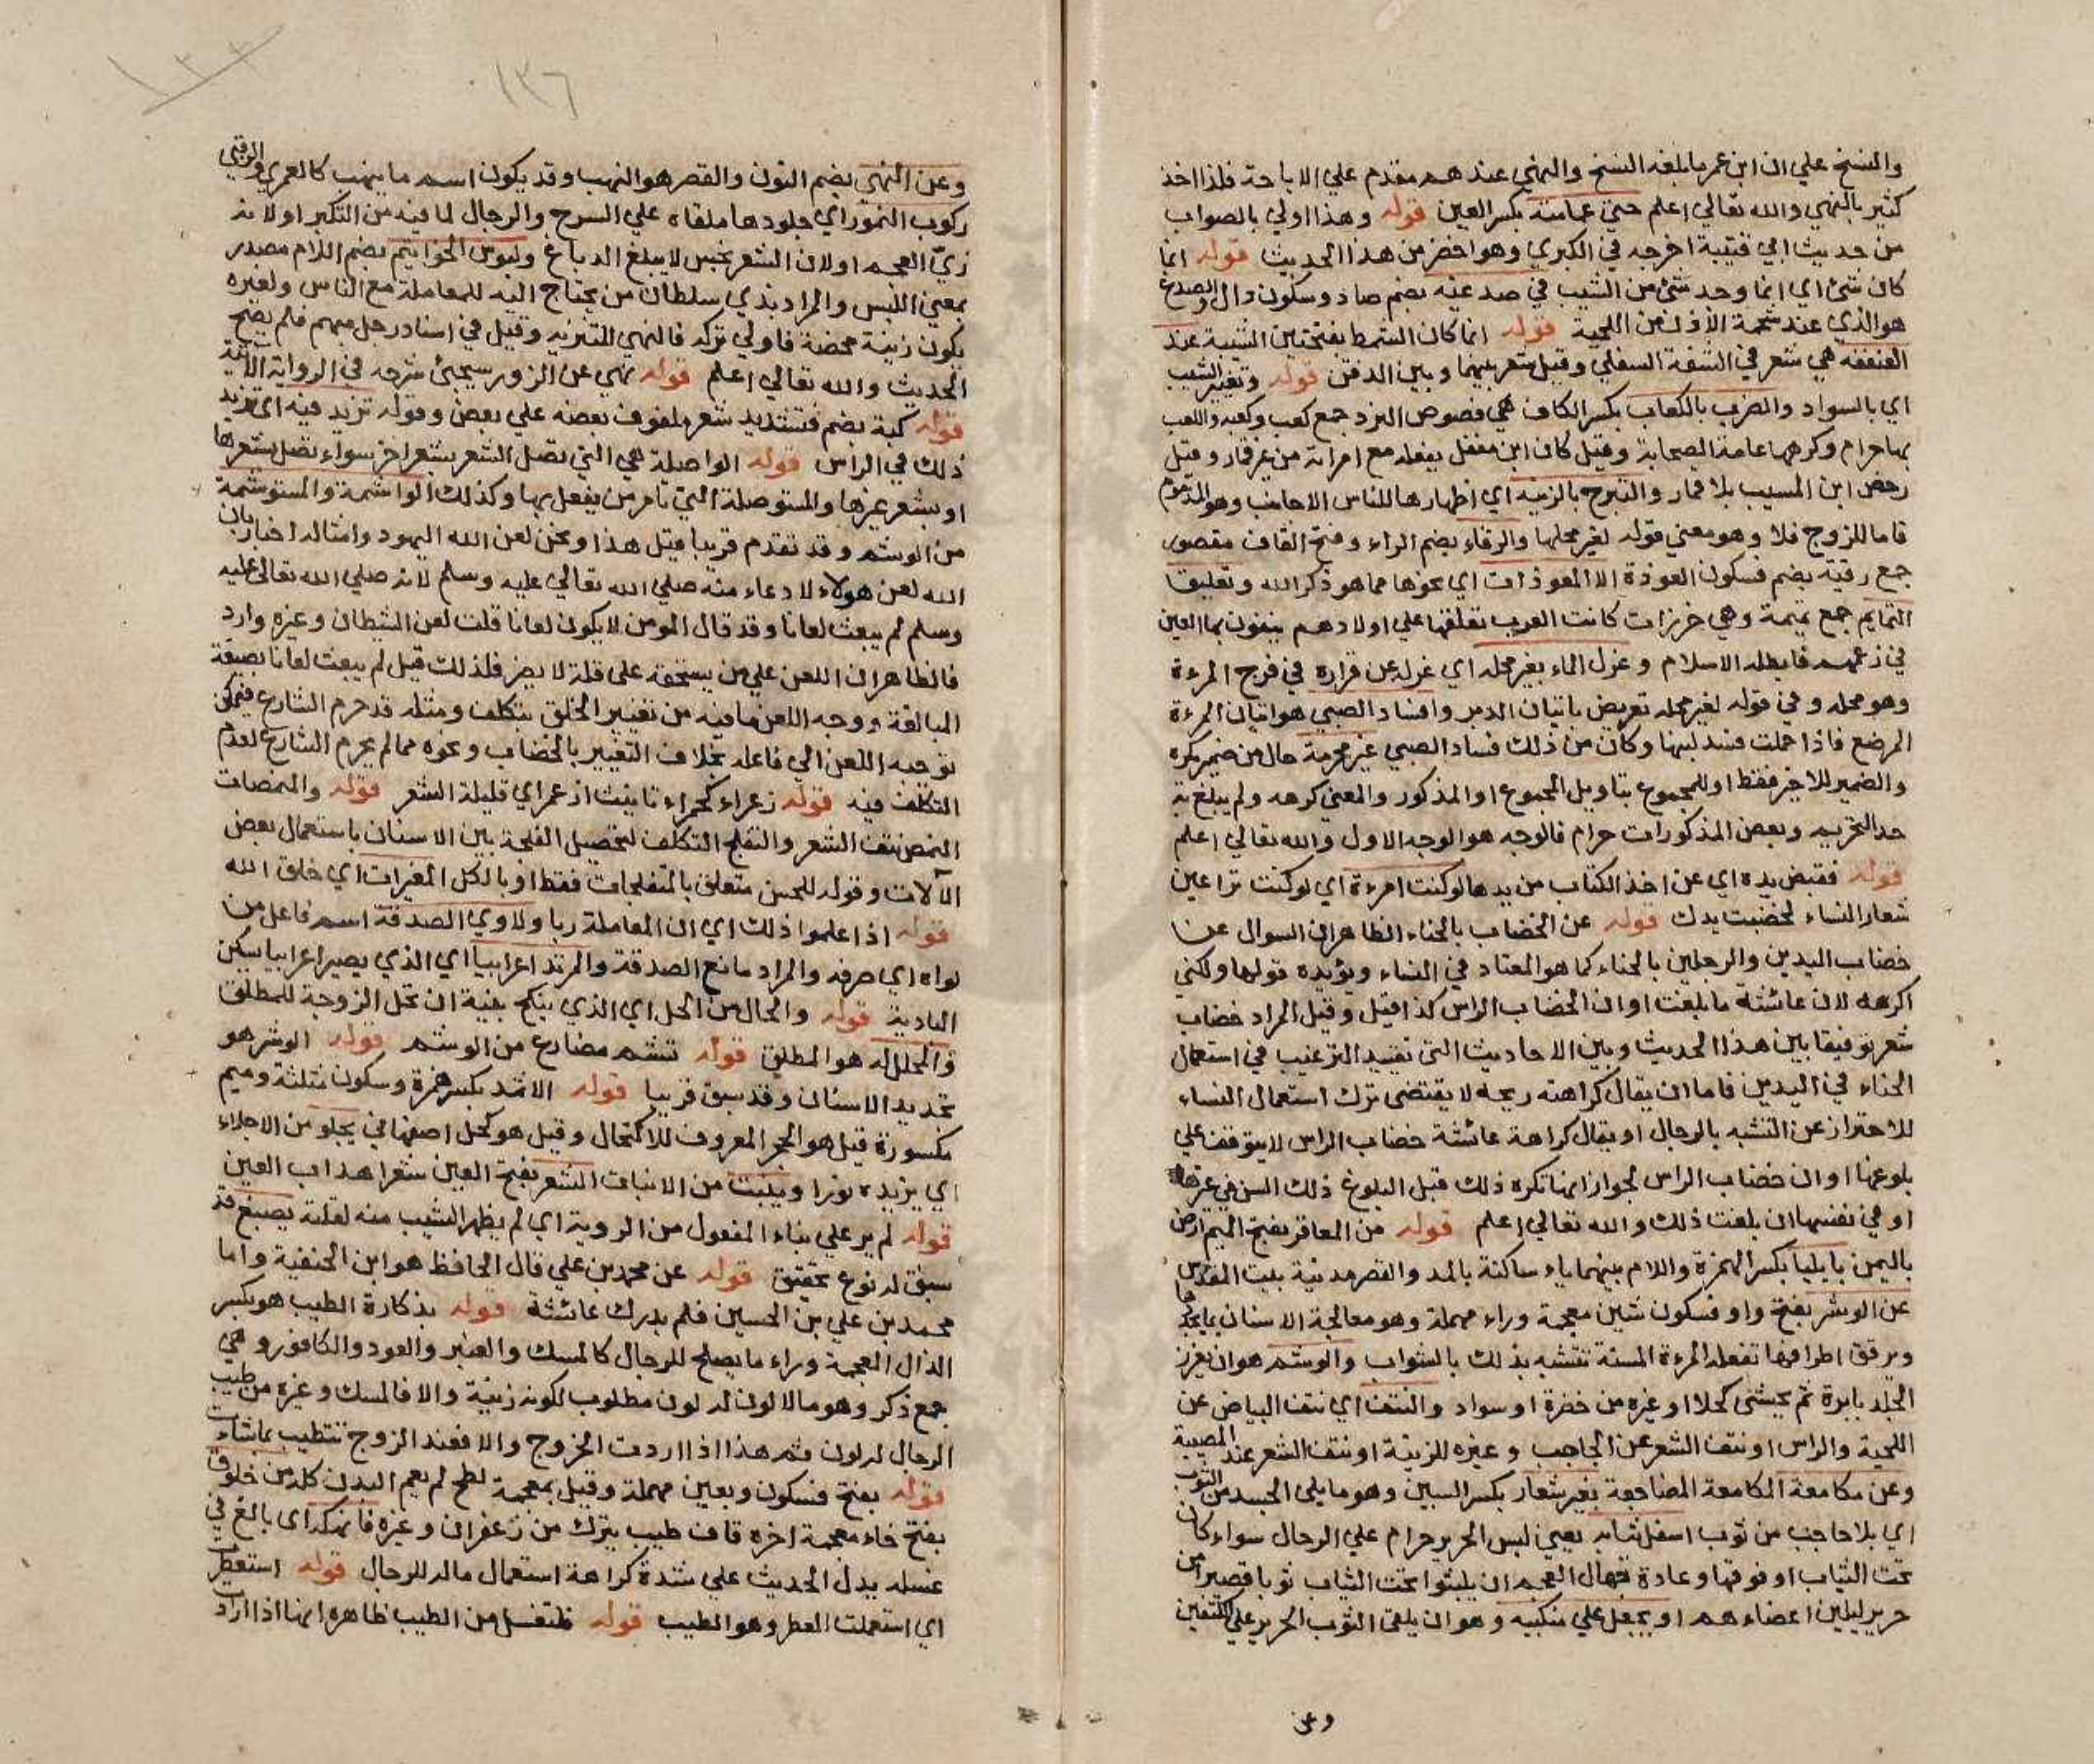 والنسخ علي ان ابن عمر ما بلغه النسخ والنهي عندهم مقدم علي الاباحة فلذا اخذ
كثير بالنهي والله تعالي اعلم حتي عمامته بكسر العين قوله وهذا اولي بالصواب
من حديث ابي قتيبة اخرجه في الكبري وهو اخضر من هذا الحديث قوله انما
كان شئ اي انما وجد شئ من الشيب في صدغيه بضم صاد وسكون دال والصدغ
هو الذي عند شحمة الاذن من اللحية قوله انما كان الشمط بفتحتين الشيبة عند
العنفقة هي شعر في الشفة السفلي وقيل شعر بينهما وبين الذقن قوله وتغيير الشيب
اي بالسواد والضرب بالكعاب بكسر الكاف هي فصوص النرد جمع كعب وكعبة واللعب
بها حرام وكرهها عامة الصحابة وقيل كان ابن مغفل يفعله مع امراته من غير قمار وقيل
رخص ابن المسيب بلا قمار والتبرج بالزينة اي اظهارها للناس الاجانب وهو المذموم
فاما للزوج فلا وهو معني قوله لغير محلها والرقاء بضم الراء وفتح القاف مقصور
جمع رقية بضم فسكون العوذة الا المعوذات اي نحوها مما هو ذكر الله وتعليق
التمايم جمع تميمة وهي خرزات كانت العرب تعلقها علي اولادهم ينفون بها العين
في زعمهم فابطله الاسلام وعزل الماء بغير محله اي عزله عن قراره في فرج المرءة
وهو محله وفي قوله لغير محله تعريض باتيان الدبر وافساد الصبي هو اتيان المرءة
المرضع فاذا حملت فسد لبنها وكان من ذلك فساد الصبي غير محرمة حال من ضمير يكره
والضمير للاخير فقط او للمجموع بتاويل المجموع او المذكور والمعني كرهه ولم يبلغ به
حد التحريم وبعض المذكورات حرام فالوجه هو الوجه الاول والله تعالي اعلم
قوله فقبض يده اي عن اخذ الكتاب من يدها لو كنت امرءة اي لو كنت تراعين
شعار النساء لخضبت يدك قوله عن الخضاب بالحناء الظاهر ان السوال عن
خضاب اليدين والرجلين بالحناء كما هو المعتاد في النساء ويؤيده قولها ولكني
اكرهه لان عائشة ما بلغت او ان الخضاب الراس كذا قيل وقيل المراد خضاب
شعر توفيقا بين هذا الحديث وبين الاحاديث التي تفيد الترغيب في استعمال
الحناء في اليدين فاما ان يقال كراهته ريحه لا يقتضي ترك استعمال النساء
للاحتراز عن التشبه بالرجال او يقال كراهة عائشة خضاب الراس لا يتوقف علي
بلوغها او ان خضاب الراس لجواز انها تكره ذلك قبل البلوغ ذلك السن في غيرها
او في نفسها ان بلغت ذلك والله تعالي اعلم قوله من المعافر بفتح الميم ارض
باليمن بايليا بكسر الهمزة واللام بينهما ياء ساكنة بالمد والقصر مدينة بيت المقدس
عن الوشر بفتح واو فسكون شين معجمة وراء مهملة وهو معالجة الاسنان بما يحد
ويرقق اطرافها تفعله المرءة المسنة تتشبه بذلك بالشواب والوشم هو ان يغرز
الجلد بابرة ثم يحشي كحلا او غيره من خضرة او سواد والنتف اي نتف البياض عن
اللحية والراس او نتف الشعر عن الحاجب وغيره للزينة او نتف الشعر عند المصيبة
وعن مكامعة المكامعة المضاجعة بغير شعار بكسر السين وهو ما يلي الجسد من الثوب
اي بلا حاجب من ثوب اسفل ثيابه يعني لبس الحرير حرام علي الرجال سواء كان
تحت الثياب او فوقها وعادة جهال العجم ان يلبثوا تحت الثياب ثوبا قصيرا من
حرير ليلين اعضاءهم او يجعل علي منكبيه وهو ان يلقي الثوب الحرير علي الكتفين
وعن
١٣٦
وعن النهبي بضم النون والقصر هو النهب وقد يكون اسم ما ينهب كالعمري والرقبي
ركوب النمور اي جلودها ملقاه علي السرج والرحال لما فيه من التكبر او لانه
زي العجم او لان الشعر نجس لا يبلغ الدباغ ولبوس الخواتيم بضم اللام مصدر
بمعني اللبس والمراد بذي سلطان من يحتاج اليه للمعاملة مع الناس ولغيره
يكون زينة محضة فاولي تركه فالنهي للتنزيه وقيل في اسناد رجل مبهم فلم يصح
الحديث والله تعالي اعلم قوله نهي عن الزور سيجئ شرحه في الرواية الاتية
قوله كبة بضم فتشديد شعر ملفوف بعضه علي بعض وقوله تزيد فيه اي تزيد
ذلك في الراس قوله الواصلة هي التي تصل الشعر بشعر اخر سواء تصل بشعرها
او بشعر غيرها والمستوصلة التي تامر من يفعل بها وكذلك الواشمة والمستوشمة
من الوشم وقد تقدم قريبا قبل هذا ونحن لعن الله اليهود وامثاله اخبار بان
الله لعن هولاء لا دعاء منه صلي الله تعالي عليه وسلم لانه صلي الله تعالي عليه
وسلم لم يبعث لعانا وقد قال المومن لا يكون لعانا قلت لعن الشيطان وغيره وارد
فالظاهر ان اللعن علي من يستحقه علي قلة لا يضر فلذلك قيل لم يبعث لعانا بصيغة
المبالغة ووجه اللعن ما فيه من تغيير الخلق بتكلف ومثله قد حرم الشارع فيمكن
توجيه اللعن الي فاعله بخلاف التغيير بالخضاب ونحوه مما لم يحرم الشارع لعدم
التكلف فيه قوله زعراء كحمراء تانيث ازعر اي قليلة الشعر قوله والنمصات
النمص نتف الشعر والتفلج التكلف لتحصيل الفلجة بين الاسنان باستعمال بعض
الآلات وقوله للحسن متعلق بالمتفلجات فقط او بالكل المغيرات اي خلق الله
قوله اذا علموا ذلك اي ان المعاملة ربا ولاوي الصدقة اسم فاعل من
لواه اي صرفه والمراد مانع الصدقة والمرتد اعرابيا اي الذي يصير اعرابيا يسكن
البادية قوله والحال من الحل اي الذي ينكح بنية ان تحل الزوجة للمطلق
والمحلل له هو المطلق قوله تشم مضارع من الوشم قوله الوشر هو
تحديد الاسنان وقد سبق قريبا قوله الاثمد بكسر همزة وسكون مثلثة وميم
مكسورة قيل هو الحجر المعروف للاكتحال وقيل هو كحل اصفهاني يجلو من الاجلاء
اي يزيده نورا وينبت من الانبات الشعر بفتح العين شعر اهداب العين
قوله لم ير علي بناء المفعول من الروية اي لم يظهر الشيب منه لقلته يصبغ قد
سبق له نوع تحقيق قوله عن محمد بن علي قال الحافظ هو ابن الحنفية واما
محمد بن علي بن الحسين فلم يدرك عائشة قوله بذكارة الطيب هو بكسر
الذال المعجمة وراء ما يصلح للرجال كالمسك والعنبر والعود والكافور وهي
جمع ذكر وهو ما لا لون له لون مطلوب لكونه زينة والا فالمسك وغيره من طيب
الرجال له لون ثم هذا اذا اردت الخروج والا فعند الزوج تتطيب بما شاءت
قوله بفتح فسكون وبعين مهملة وقيل بمعجمة لطخ لم يعم البدن كله من خلوق
بفتح خاء معجمة اخره قاف طيب يترك من زعفران وغيره فانهكه اي بالغ في
غسله يدل الحديث علي شدة كراهة استعمال ماله للرجال قوله استعطر
اي استعملت العطر وهو الطيب قوله فلتغسل من الطيب ظاهره انها اذا اراد